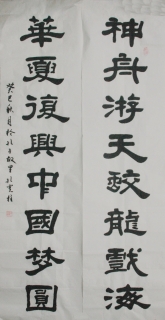 神舟游天蛟龍戲海
華夏復興中國梦圓
癸巳秋月